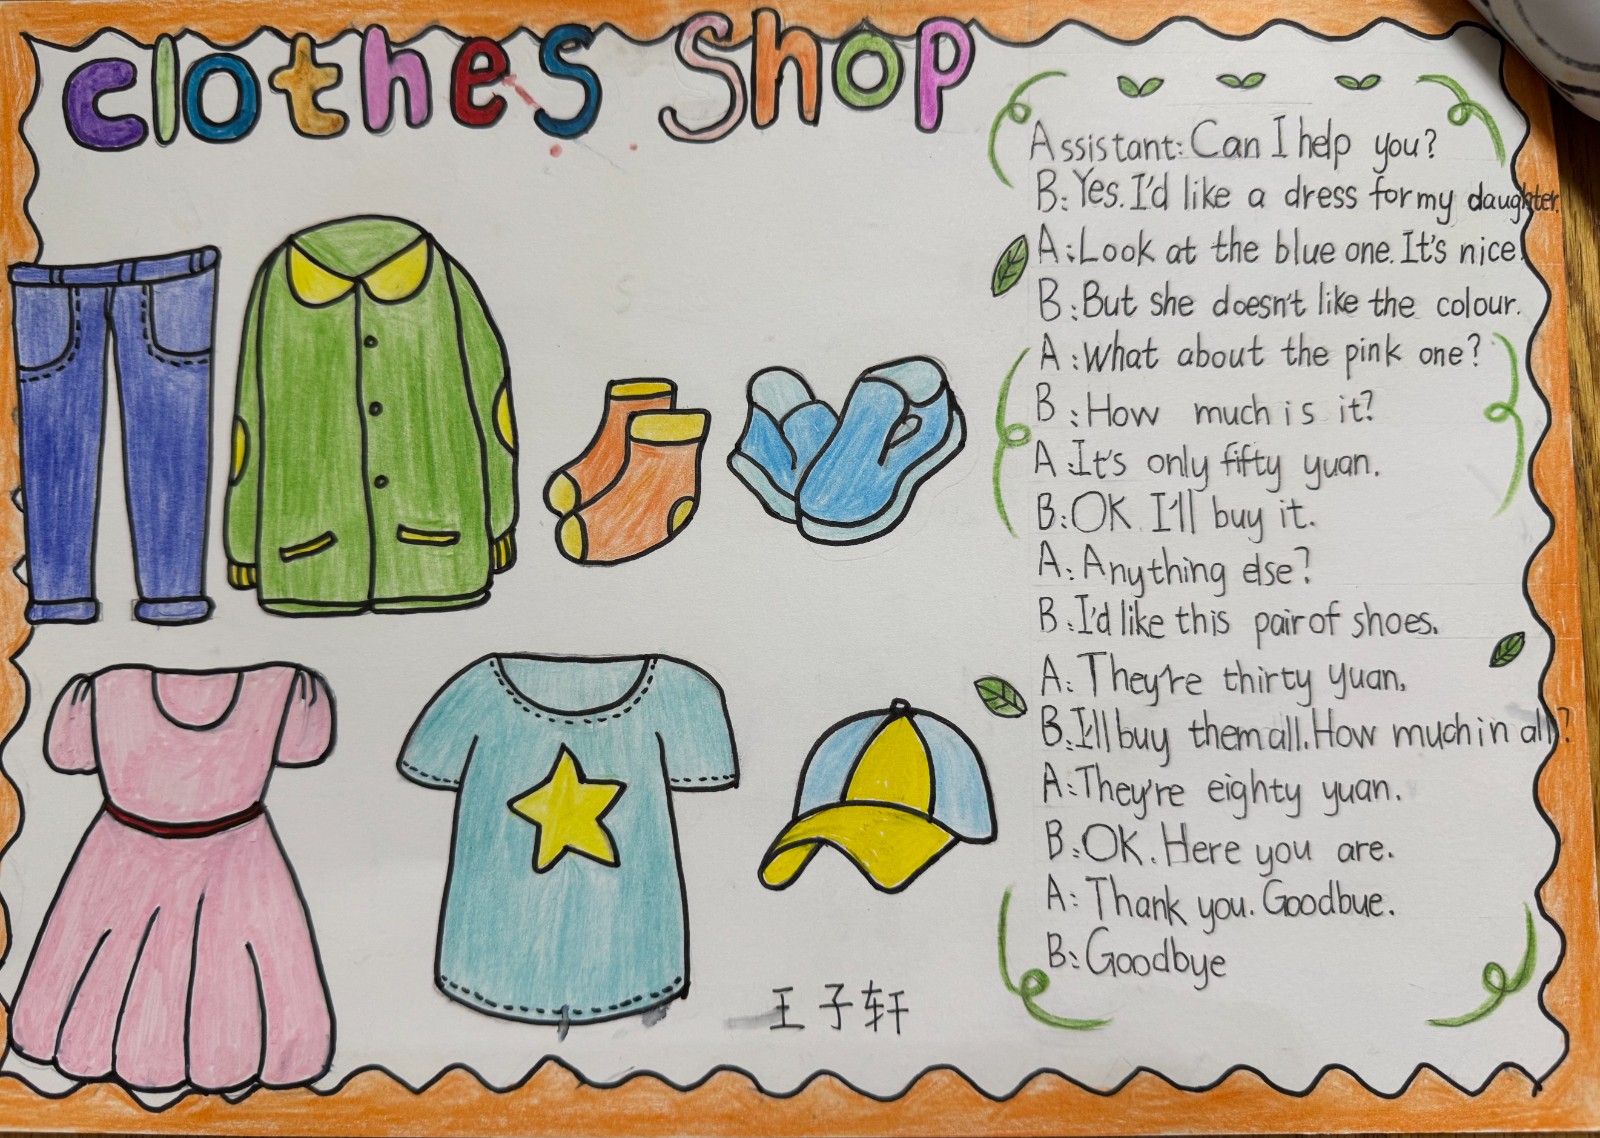 Clothes Shop
Assistant: Can I help you?
B: Yes. I'd like a dress for my daughter.
A: Look at the blue one. It's nice.
B: But she doesn't like the colour.
A: What about the pink one?
B: How much is it?
A: It's only fifty yuan.
B: OK. I'll buy it.
A: Anything else?
B: I'd like this pair of shoes.
A: They're thirty yuan.
B: I'll buy them all. How much in all?
A: They're eighty yuan.
B: OK. Here you are.
A: Thank you. Goodbue.
B: Goodbye
王子轩